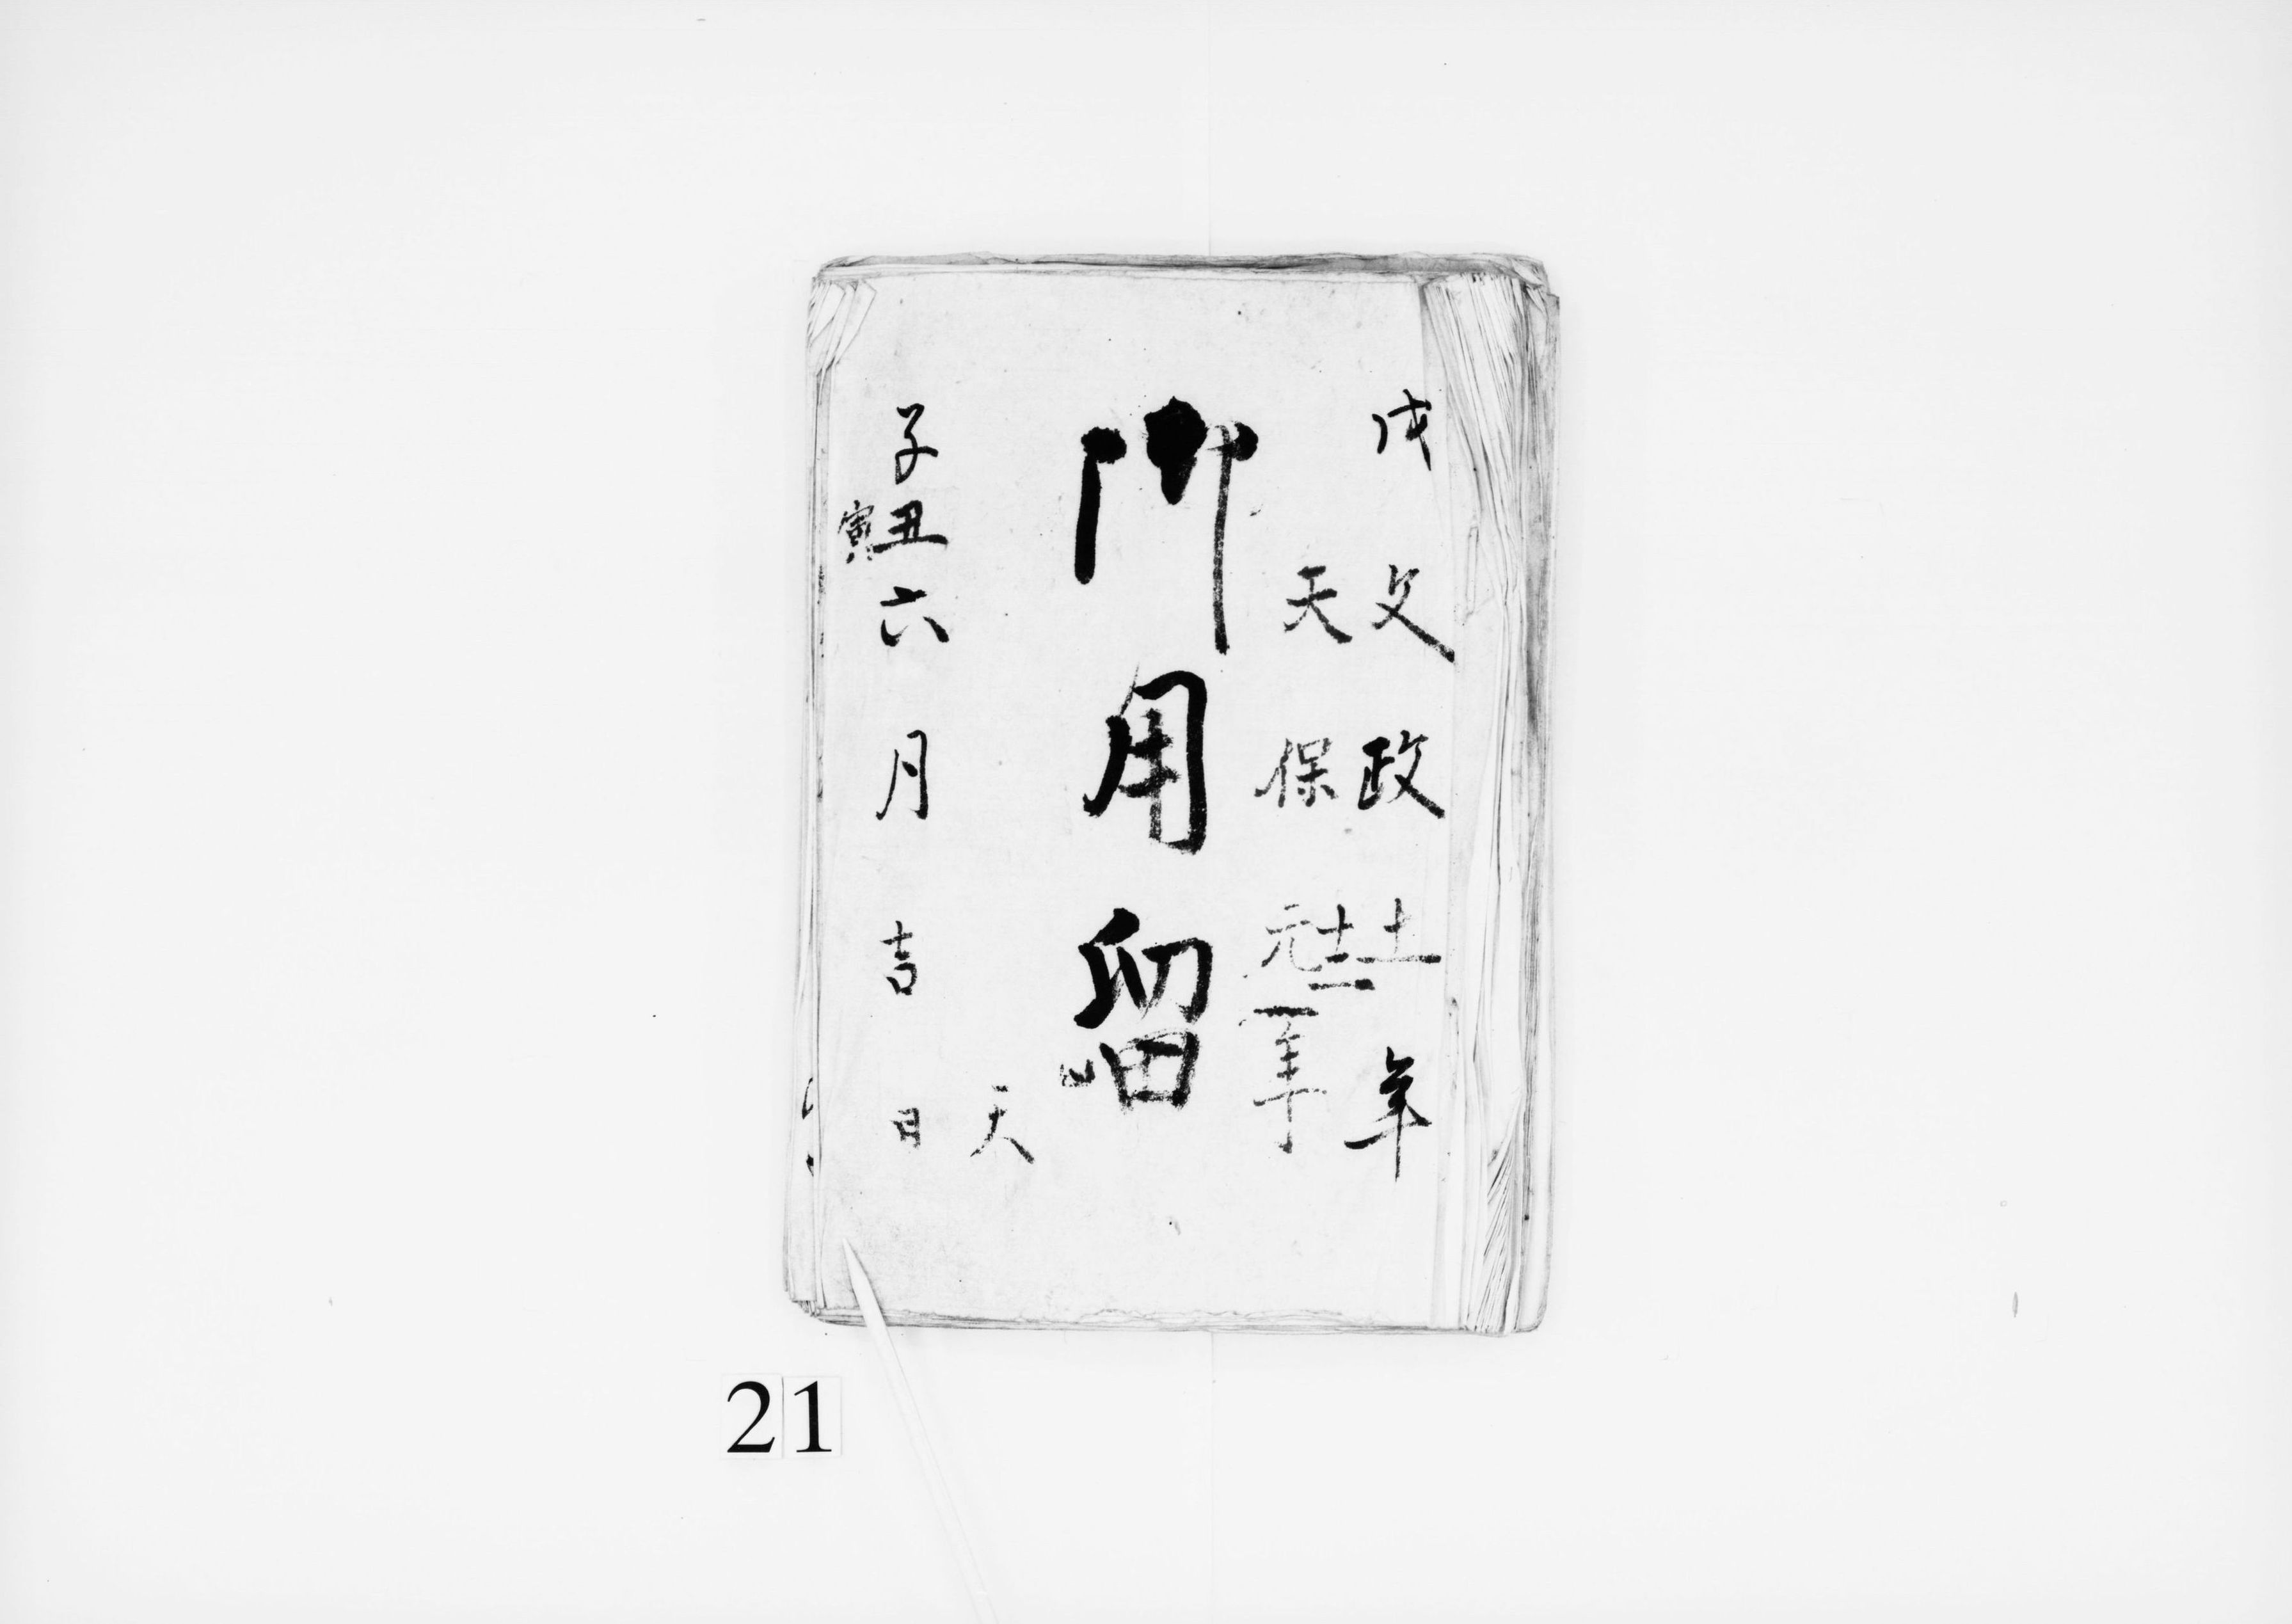 戌 文政十一年
十二
天保元年
御用留
天
子丑六月吉日
寅
21